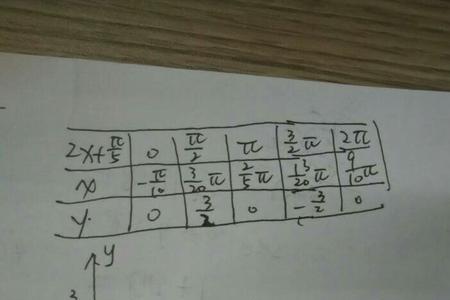 2x+π/5 0 π/2 π 3/2π 2π
x -π/10 3/20π 2/5π 13/20π 9/10π
y 0 3/2 0 -3/2 0
y